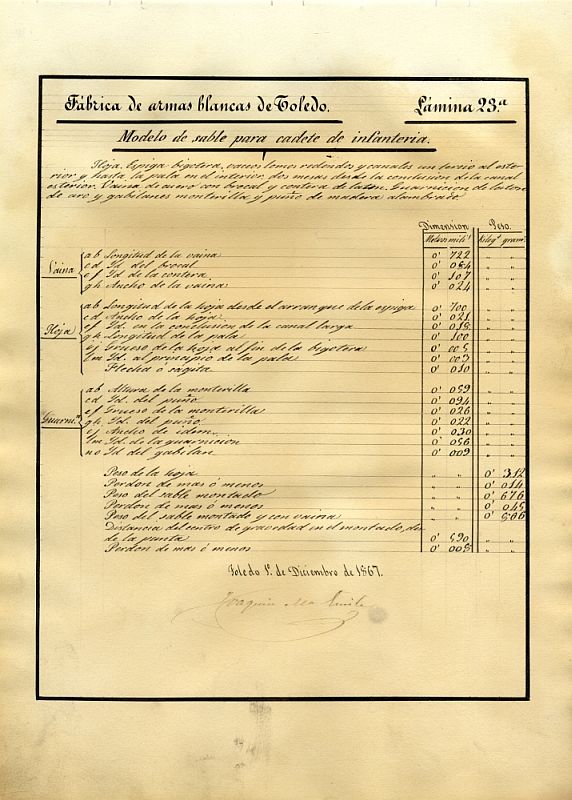 Fábrica de armas blancas de Toledo. Lámina 23.ª
Modelo de sable para cadete de infanteria.
Hoja. Espiga bigotera, vaceos lomos redondos y canales un tercio al este-
rior y hasta la pala en el interior, dos mesas desde la conclusion de la canal
esterior. Vaina de acero con brocal y contera de laton. Guarnicion de laton
de aro y gabilanes monterilla y puño de madera alambrado.
Dimension Peso.
Metros milits Kilogs grams
Vaina
ab Longitud de la vaina 0' 722 " "
cd Id. del brocal 0' 054 " "
ef Id. de la contera 0' 107 " "
gh Ancho de la vaina 0' 024 " "
Hoja
ab Longitud de la hoja desde el arranque de la espiga 0' 700 " "
cd Ancho de la hoja 0' 021 " "
ef Id. en la conclusion de la canal larga 0' 018 " "
gh Longitud de la pala 0' 100 " "
ej Grueso de la hoja al fin de la bigotera 0' 005 " "
lm Id. al principio de la pala 0' 003 " "
Flecha ó ságita 0' 010 " "
Guarnn
ab Altura de la monterilla 0' 059 " "
cd Id. del puño 0' 094 " "
ef Grueso de la monterilla 0' 026 " "
gh Id. del puño 0' 022 " "
ej Ancho de idem 0' 030 " "
lm Id. de la guarnicion 0' 056 " "
no Id. del gabilan 0' 009 " "
Peso de la hoja " " 0' 312
Perdon de mas ó menos " " 0' 014
Peso del sable montado " " 0' 676
Perdon de mas ó menos " " 0' 045
Peso del sable montado y con vaina " " 0'
Distancia del centro de gravedad en el montado, des
de la punta 0' 590 " "
Perdon de mas ó menos 0' 008 " "
Toledo 1º de Diciembre de 1867.
Joaquin